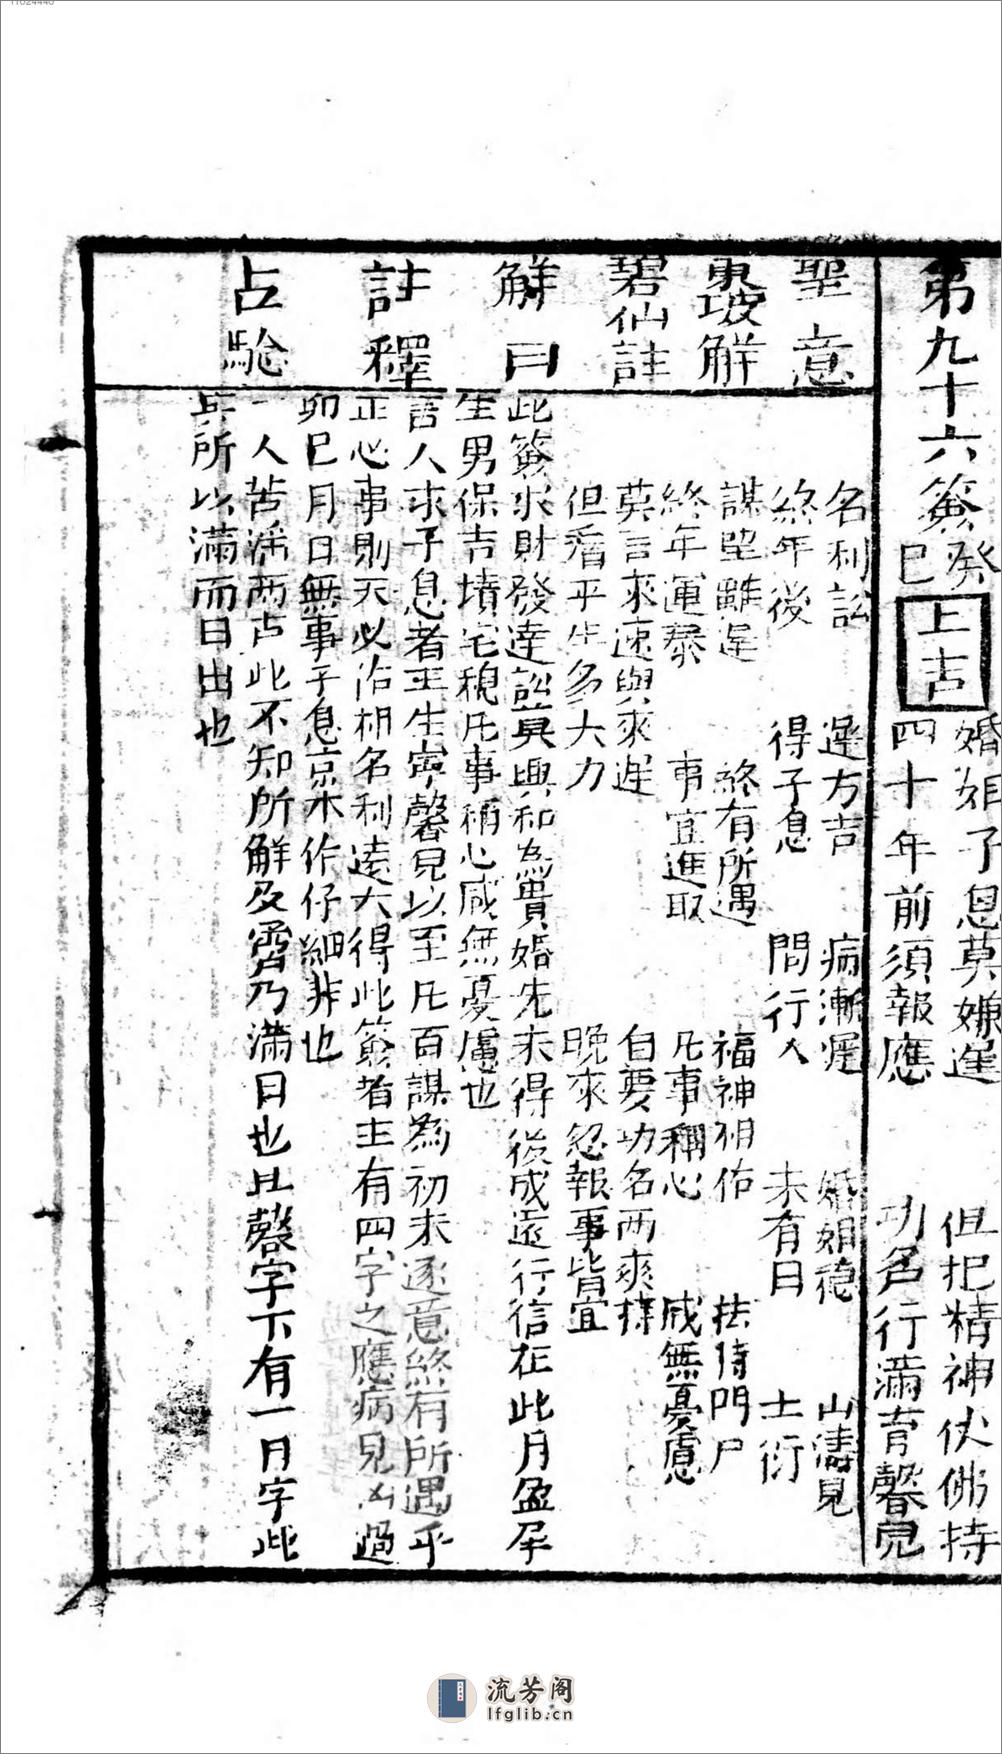 11024440
第九十六籤 癸巳 上吉
婚姻子息莫嫌遲 但把精神仗佛持
四十年前須報應 功名行滿育馨兒
聖意
名利訟 遲方吉 病漸遲 婚姻穩 山濤見
終年後 得子息 問行人 未有日 士衍
東坡解
謀望雖遲 終有所遇 福神相佑 扶持門戶
終年運泰 事宜進取 凡事稱心 咸無憂慮
碧仙註
莫言來速與來遲 自要功名兩爽
但看平生多大力 晚來忽報事皆宜
解曰
此籤求財發達訟莫興和為貴婚先未得後成遠行信在此月孟
生男保吉墳宅穩凡事稱心咸無憂慮也
註釋
言人求子息者主生寧馨兒以至凡百謀為初未逐意終有所遇乎
正心事則天必佑相名利遠大得此籤者主有四字之應病見凶過
卯巳月日無事子息京木作仔細非也
占驗
一人苦淫雨占此不知所解及霽乃滿日也比馨字下有一月字此
兵所以滿而日出也
流芳阁
lfglib.cn